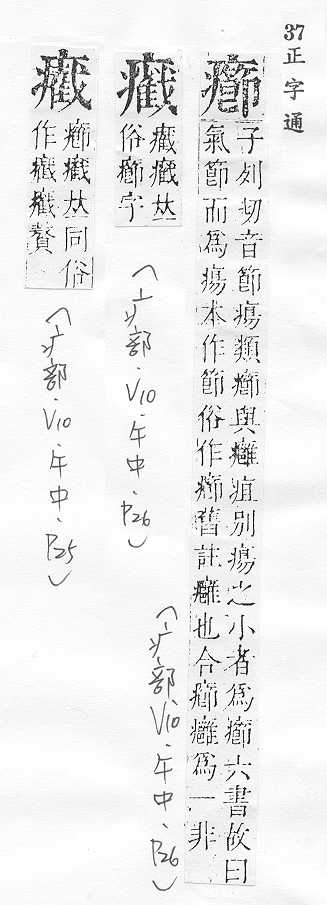 37正字通
癤
子列切音節瘍類癤與癰疽別瘍之小者爲癤六書故曰
氣節而爲瘍本作節俗作癤舊註癰也合癤癰爲一非
(疒部、V10、午中、P26)
𠀤
俗癤字
(疒部、V10、午中、P26)
癤𠀤同俗
作
(疒部、V10、午中、P25)